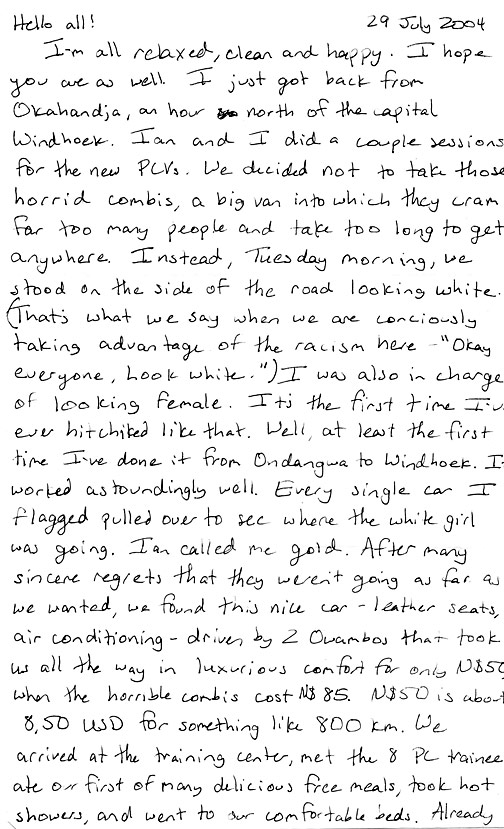 Hello all! 29 July 2004
I'm all relaxed, clean and happy. I hope
you are as well. I just got back from
Okahandja, an hour north of the capital
Windhoek. Ian and I did a couple sessions
for the new PCVs. We decided not to take those
horrid combis, a big van into which they cram
far too many people and take too long to get
anywhere. Instead, Tuesday morning, we
stood on the side of the road looking white.
(That's what we say when we are conciously
taking advantage of the racism here - "Okay
everyone, Look white.") I was also in charge
of looking female. It's the first time I'v
ever hitchiked like that. Well, at least the first
time I've done it from Ondangwa to Windhoek. I
worked astoundingly well. Every single car I
flagged pulled over to see where the white girl
was going. Ian called me gold. After many
sincere regrets that they weren't going as far as
we wanted, we found this nice car - leather seats,
air conditioning - driven by 2 Owambos that took
us all the way in luxurious comfort for only N$50
when the horrible combis cost N$ 85. N$50 is abou
8,50 USD for something like 800 km. We
arrived at the training center, met the 8 PC trainee
ate our first of many delicious free meals, took hot
showers, and went to our comfortable beds. Already